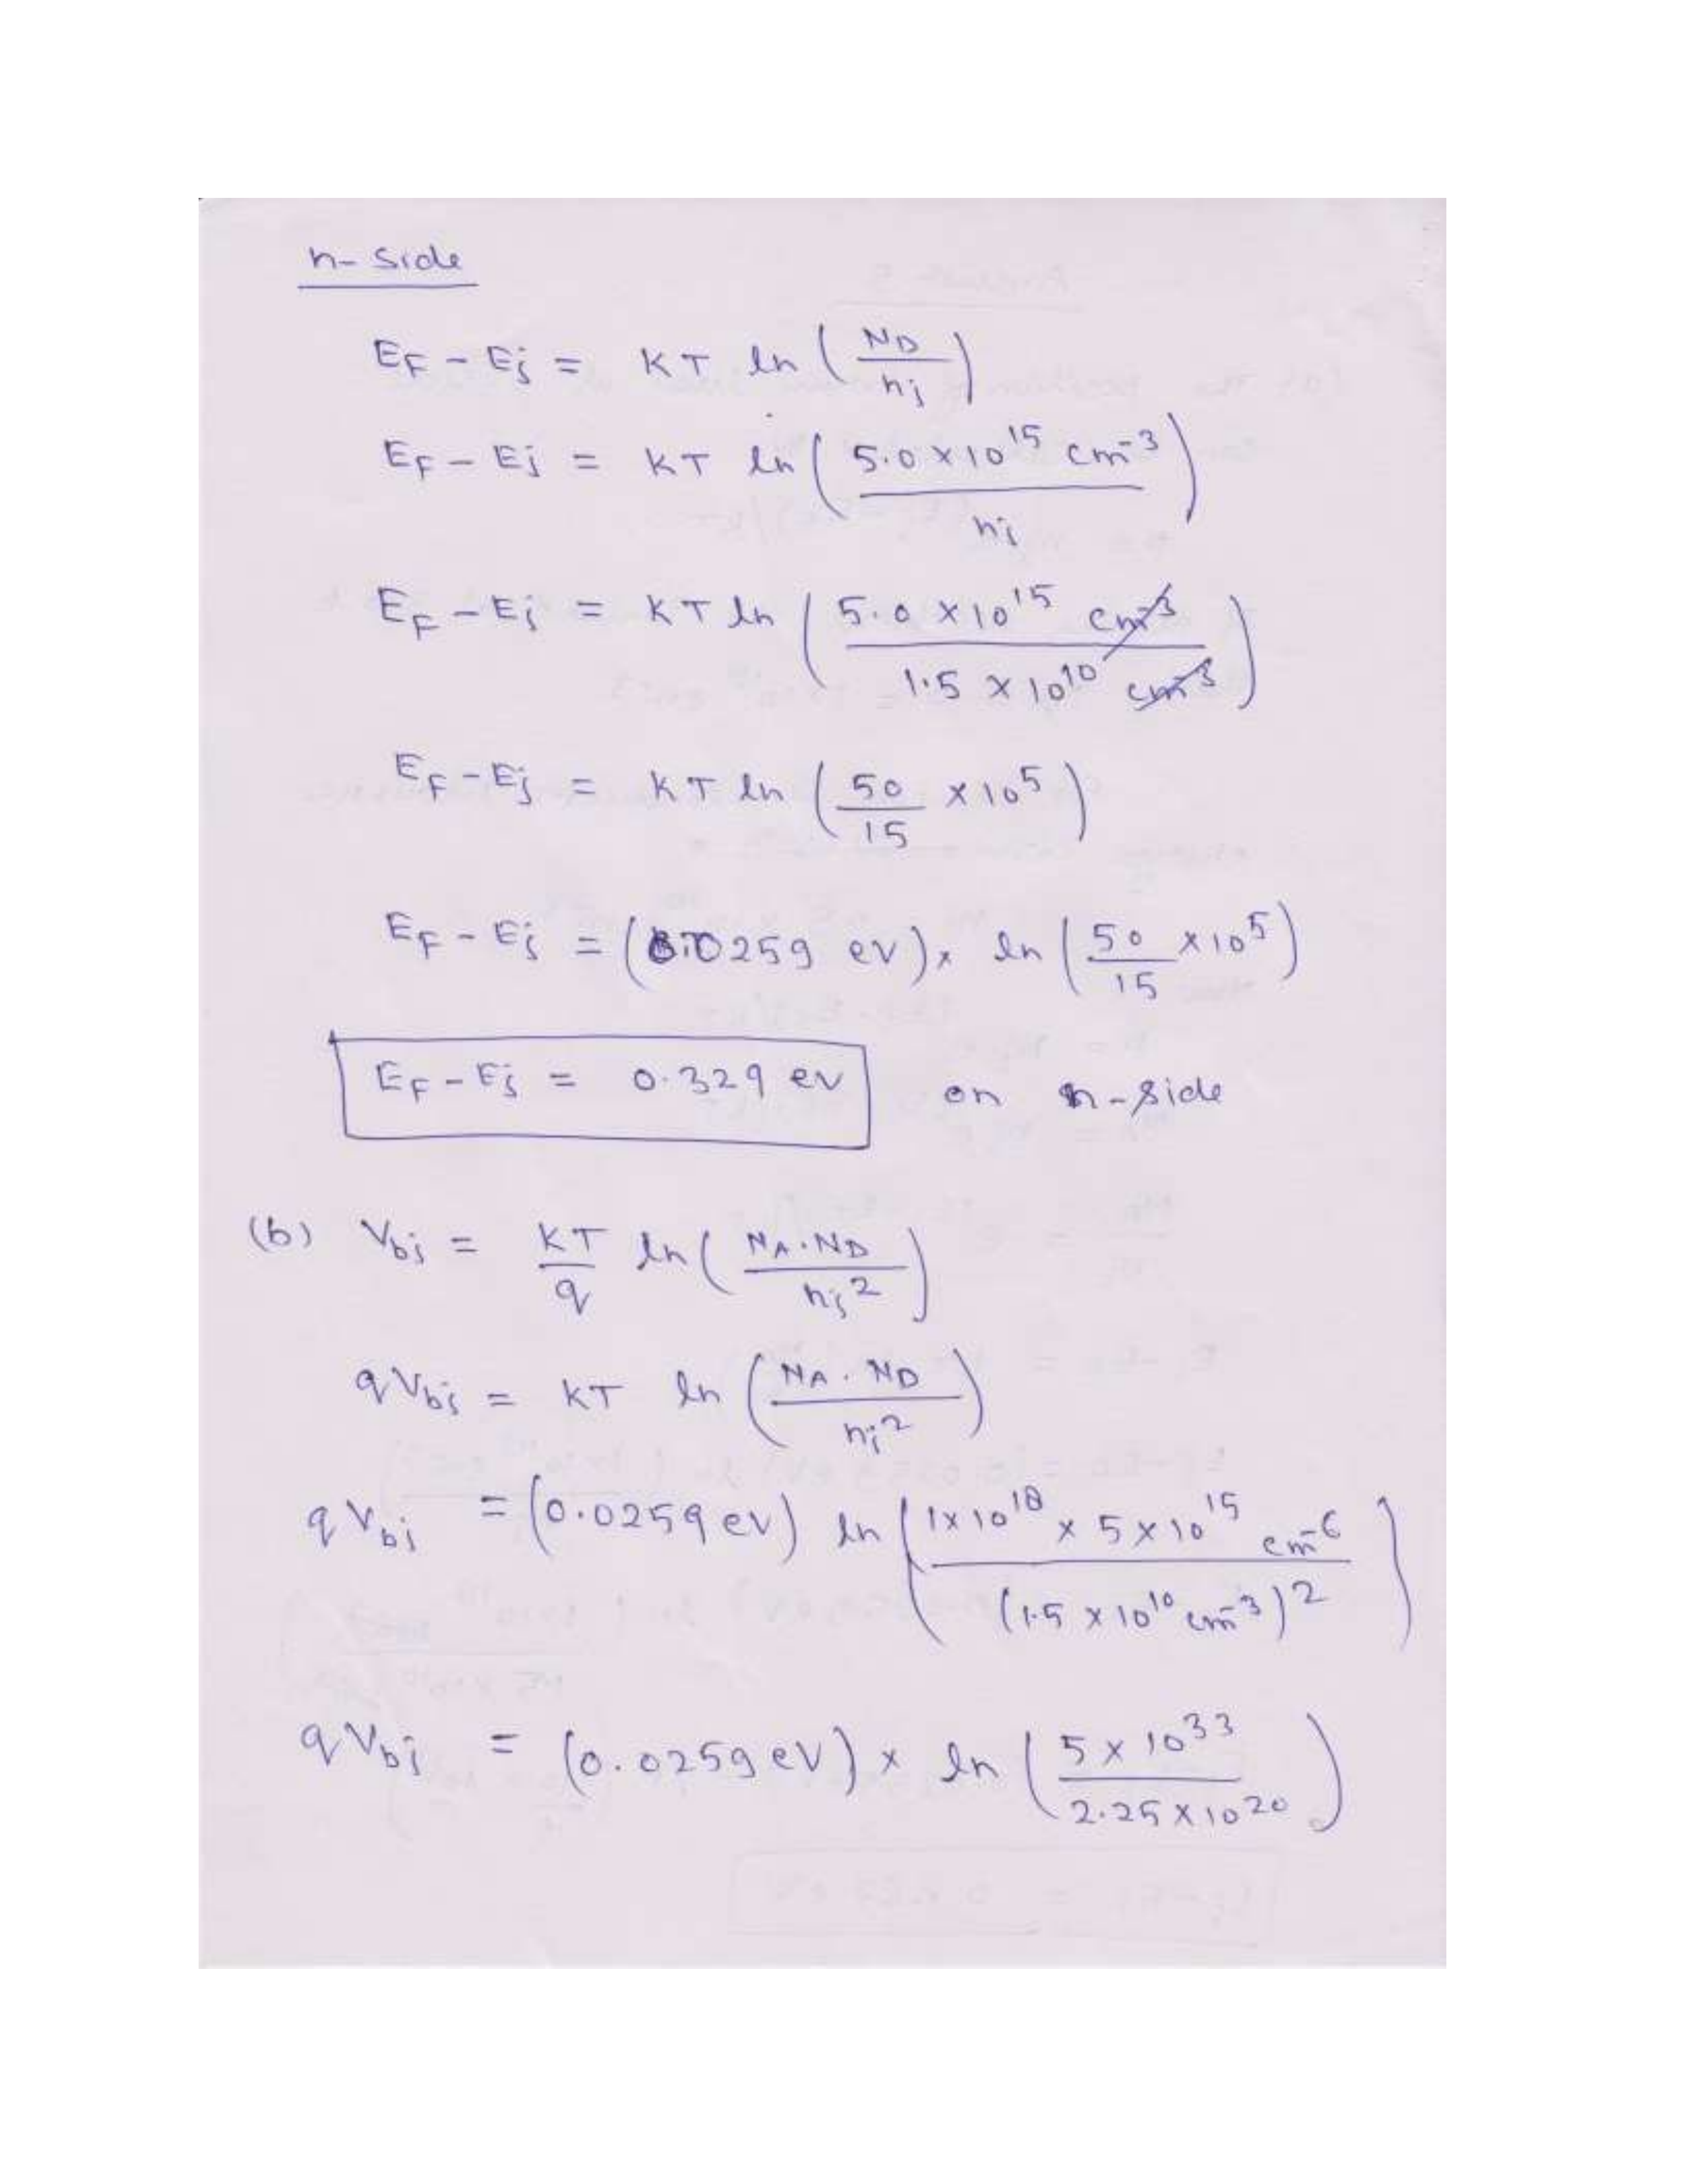 n- Side
EF - Ei = KT ln (ND / ni)
EF - Ei = KT ln (5.0 × 10^15 cm^-3 / ni)
EF - Ei = KT ln (5.0 × 10^15 cm^-3 / 1.5 × 10^10 cm^-3)
EF - Ei = KT ln (50/15 × 10^5)
EF - Ei = (0.0259 eV) × ln (50/15 × 10^5)
EF - Ei = 0.329 eV on n-side
(b) Vbi = KT/q ln (NA.ND / ni^2)
qVbi = KT ln (NA.ND / ni^2)
qVbi = (0.0259 eV) ln (1×10^18 × 5×10^15 cm^-6 / (1.5 × 10^10 cm^-3)^2)
qVbi = (0.0259 eV) × ln (5 × 10^33 / 2.25 × 10^20)